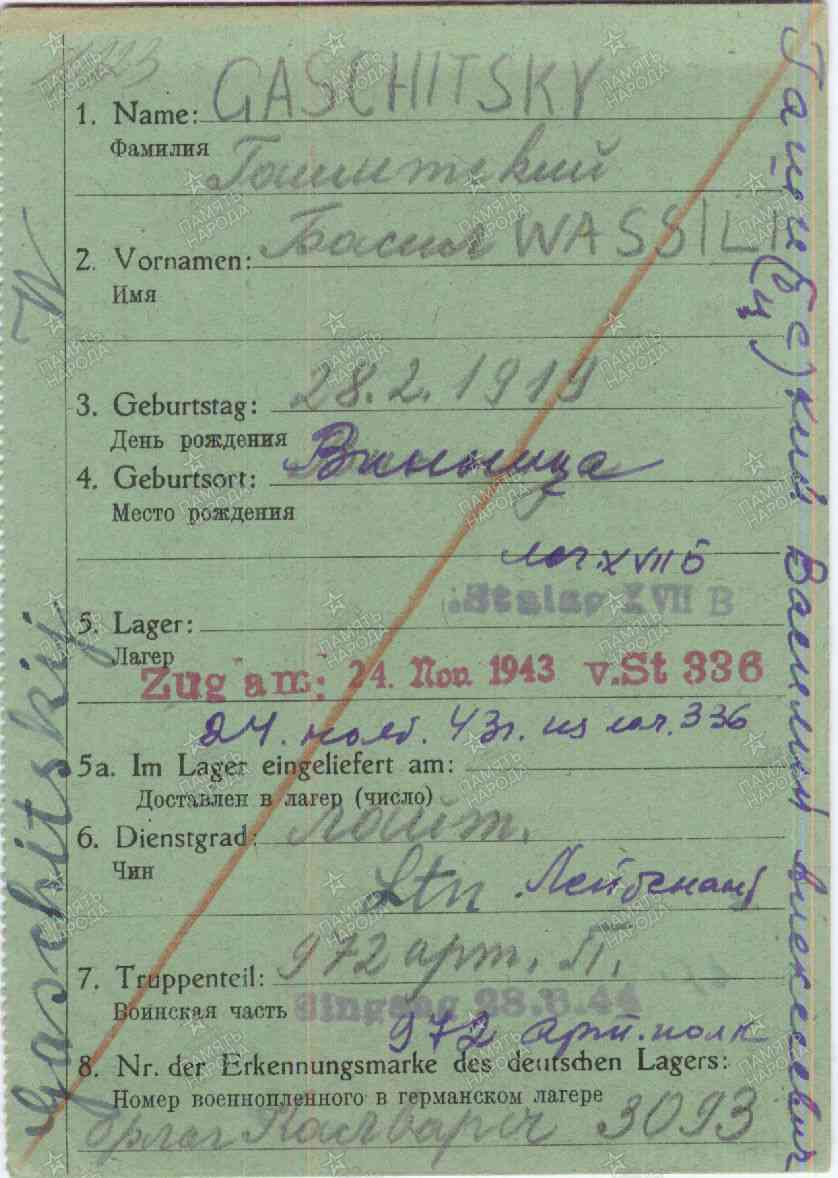 1. Name: GASCHITSKY
Фамилия Гашитский
2. Vornamen: Васил WASSILI
Имя
3. Geburtstag: 28.2.1919
День рождения
4. Geburtsort: Винница
Место рождения
лаг. XVII Б
Stalag XVII B
5. Lager:
Лагер
Zug am: 24. Nov. 1943 v.St 336
24. нояб. 43г. из лаг. 336
5a. Im Lager eingeliefert am:
Доставлен в лагер (число)
6. Dienstgrad: лайт.
Чин
Ltn Лейтенант
7. Truppenteil: 972 арт. П.
Воинская часть
Eingang
972 арт. полк
8. Nr. der Erkennungsmarke des deutschen Lagers:
Номер военнопленного в германском лагере
3093
Gaschitskij
Василий Алексеевич
ПАМЯТЬ НАРОДА